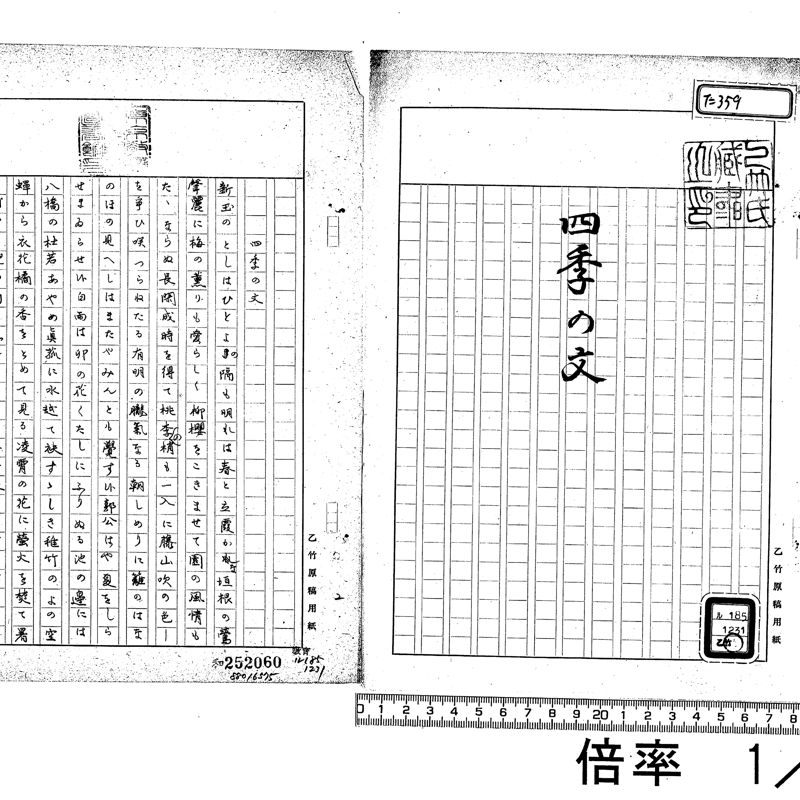 タ359
四季の文
乙竹原稿用紙
ル 185
1231
四季の文
新玉のとしはひとよの隔も明れは春と立霞かくれな垣根の鶯
聲麗に梅の薫りも愛らしく柳櫻をこきませて園の風情も
たゝならぬ長閑成時を得て桃李の梢も一入に藤山吹の色
を争ひ咲つらねたる有明の朧氣なる朝しめりに籬のはな
のほの見へしはまたやみんとも覺す郭公はや夏をしら
せまゐらせ白雨は卯の花くたしにふりぬる池の邊には
八橋の杜若あやめ眞菰に水越て袂すゝしき稚竹のよの空
蝉から衣花橘の香をとめて見る凌霄の花に螢火を焚て暑
乙竹原稿用紙
2
和252060
ル185
1231
88016575
0 1 2 3 4 5 6 7 8 9 20 1 2 3 4 5 6 7 8
倍率 1/